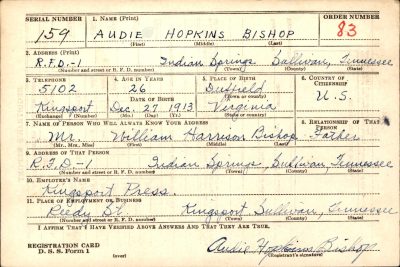 SERIAL NUMBER 1. NAME (Print) ORDER NUMBER
159 AUDIE HOPKINS BISHOP 83
(First) (Middle) (Last)
2. ADDRESS (Print)
R.F.D.-1 Indian Springs Sullivan, Tennessee
(Number and street or R. F. D. number) (Town) (County) (State)
3. TELEPHONE 4. AGE IN YEARS 5. PLACE OF BIRTH 6. COUNTRY OF CITIZENSHIP
5102 26 Duffield
DATE OF BIRTH (Town or county)
Kingsport Dec. 27 1913 Virginia U.S.
(Exchange) (Number) (Mo.) (Day) (Yr.) (State or country)
7. NAME OF PERSON WHO WILL ALWAYS KNOW YOUR ADDRESS 8. RELATIONSHIP OF THAT PERSON
Mr. William Harrison Bishop Father
(Mr., Mrs., Miss) (First) (Middle) (Last)
9. ADDRESS OF THAT PERSON
R.F.D-1 Indian Springs, Sullivan, Tennessee
(Number and street or R. F. D. number) (Town) (County) (State)
10. EMPLOYER'S NAME
Kingsport Press
11. PLACE OF EMPLOYMENT OR BUSINESS
Reedy St. Kingsport Sullivan, Tennessee
(Number and street or R. F. D. number) (Town) (County) (State)
I AFFIRM THAT I HAVE VERIFIED ABOVE ANSWERS AND THAT THEY ARE TRUE.
REGISTRATION CARD Audie Hopkins Bishop
D. S. S. Form 1 (over) (Registrant's signature)